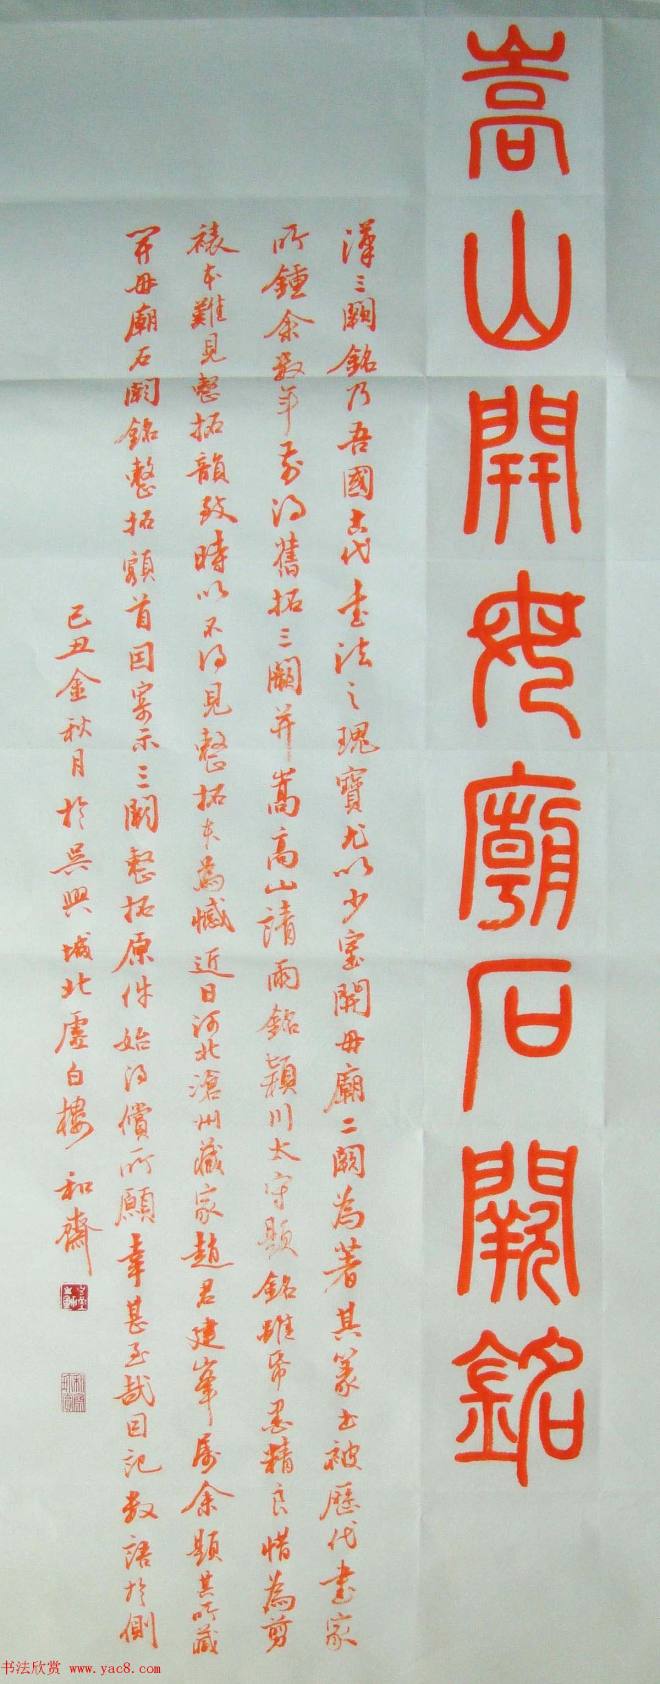 嵩山開母廟石闕銘
漢三闕銘乃吾國古代書法之瑰寶尤以少室開母廟二闕為著其篆書被歷代書家
所鍾余數年前得舊拓三闕并嵩高山請雨銘潁川太守題銘雖帋墨精良惜為剪
裱本難見整拓韻致時以不得見整拓本為憾近日河北滄州藏家趙君建峯屬余題其所藏
開母廟石闕銘整拓額首因寄示三闕整拓原件始得償所願幸甚至哉因記數語於側
己丑金秋月於吳興城北虛白樓和齋
书法欣赏 www.yac8.com